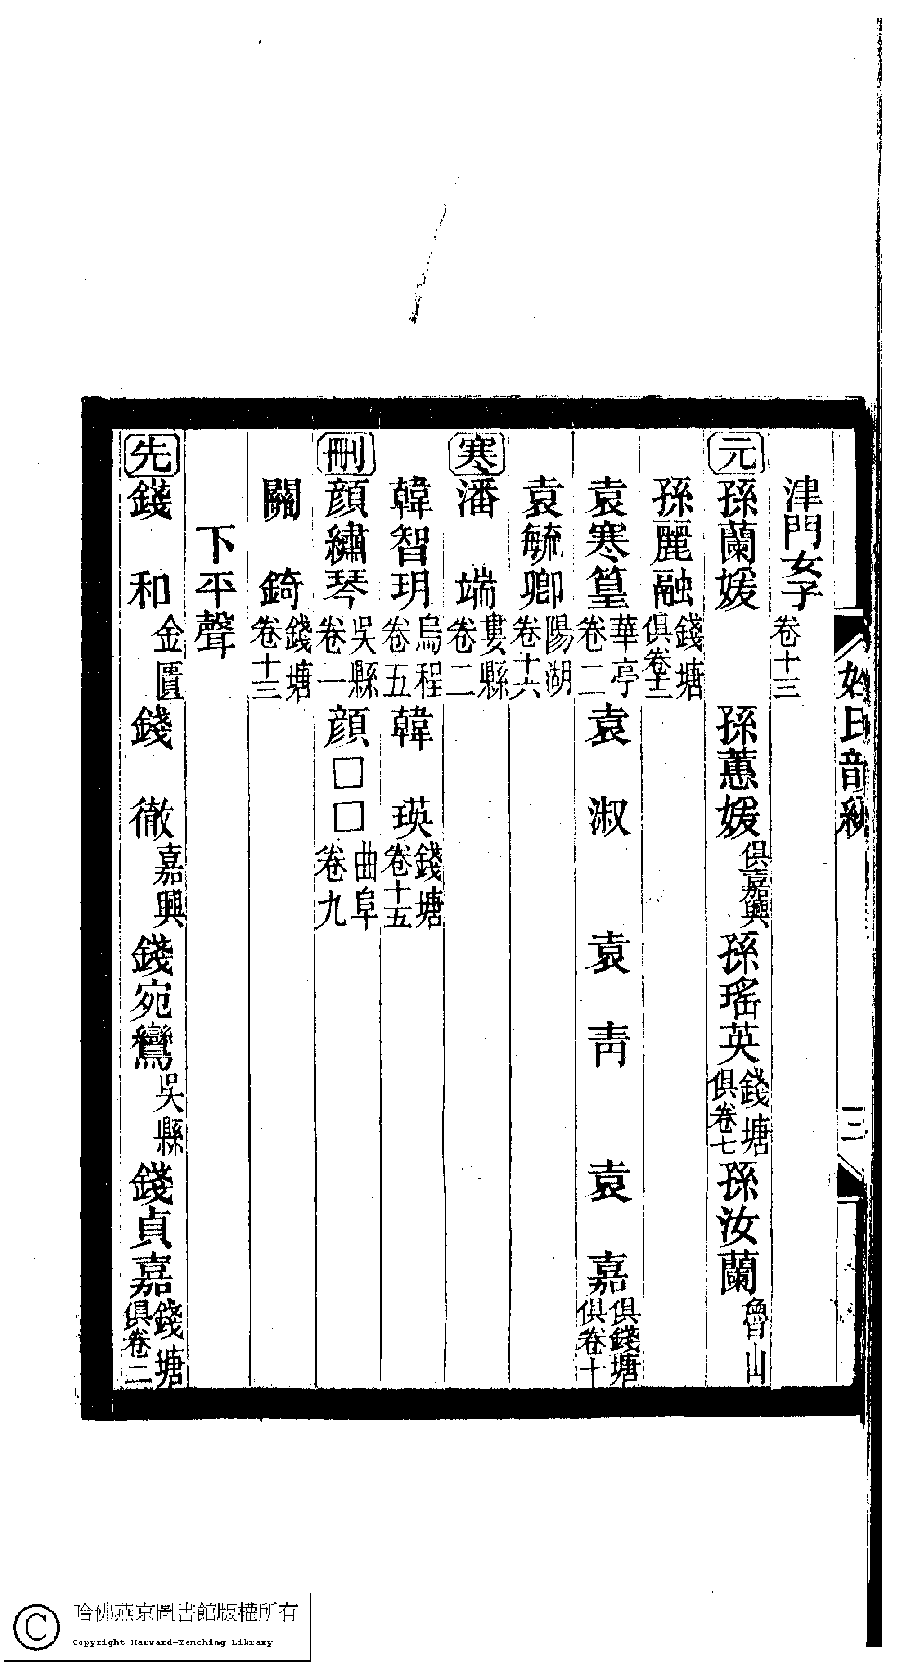 津門女子卷十三
元 孫蘭媛 孫蕙媛俱嘉興 孫瑤英錢塘俱卷七 孫汝蘭魯山
孫麗融錢塘俱卷十二
袁寒篁華亭卷二 袁淑 袁青 袁嘉俱錢塘俱卷十
袁毓卿陽湖卷十六
寒 潘端婁縣卷二
韓智玥烏程卷五 韓瑛錢塘卷十五
刪 顏繡琴吳縣卷一 顏□□曲阜卷九
關錡錢塘卷十三
下平聲
先 錢和金匱 錢徹嘉興 錢宛鸞吳縣 錢貞嘉錢塘俱卷二
姓氏韻編
三
哈佛燕京圖書館版權所有
Copyright Harvard-Yenching Library